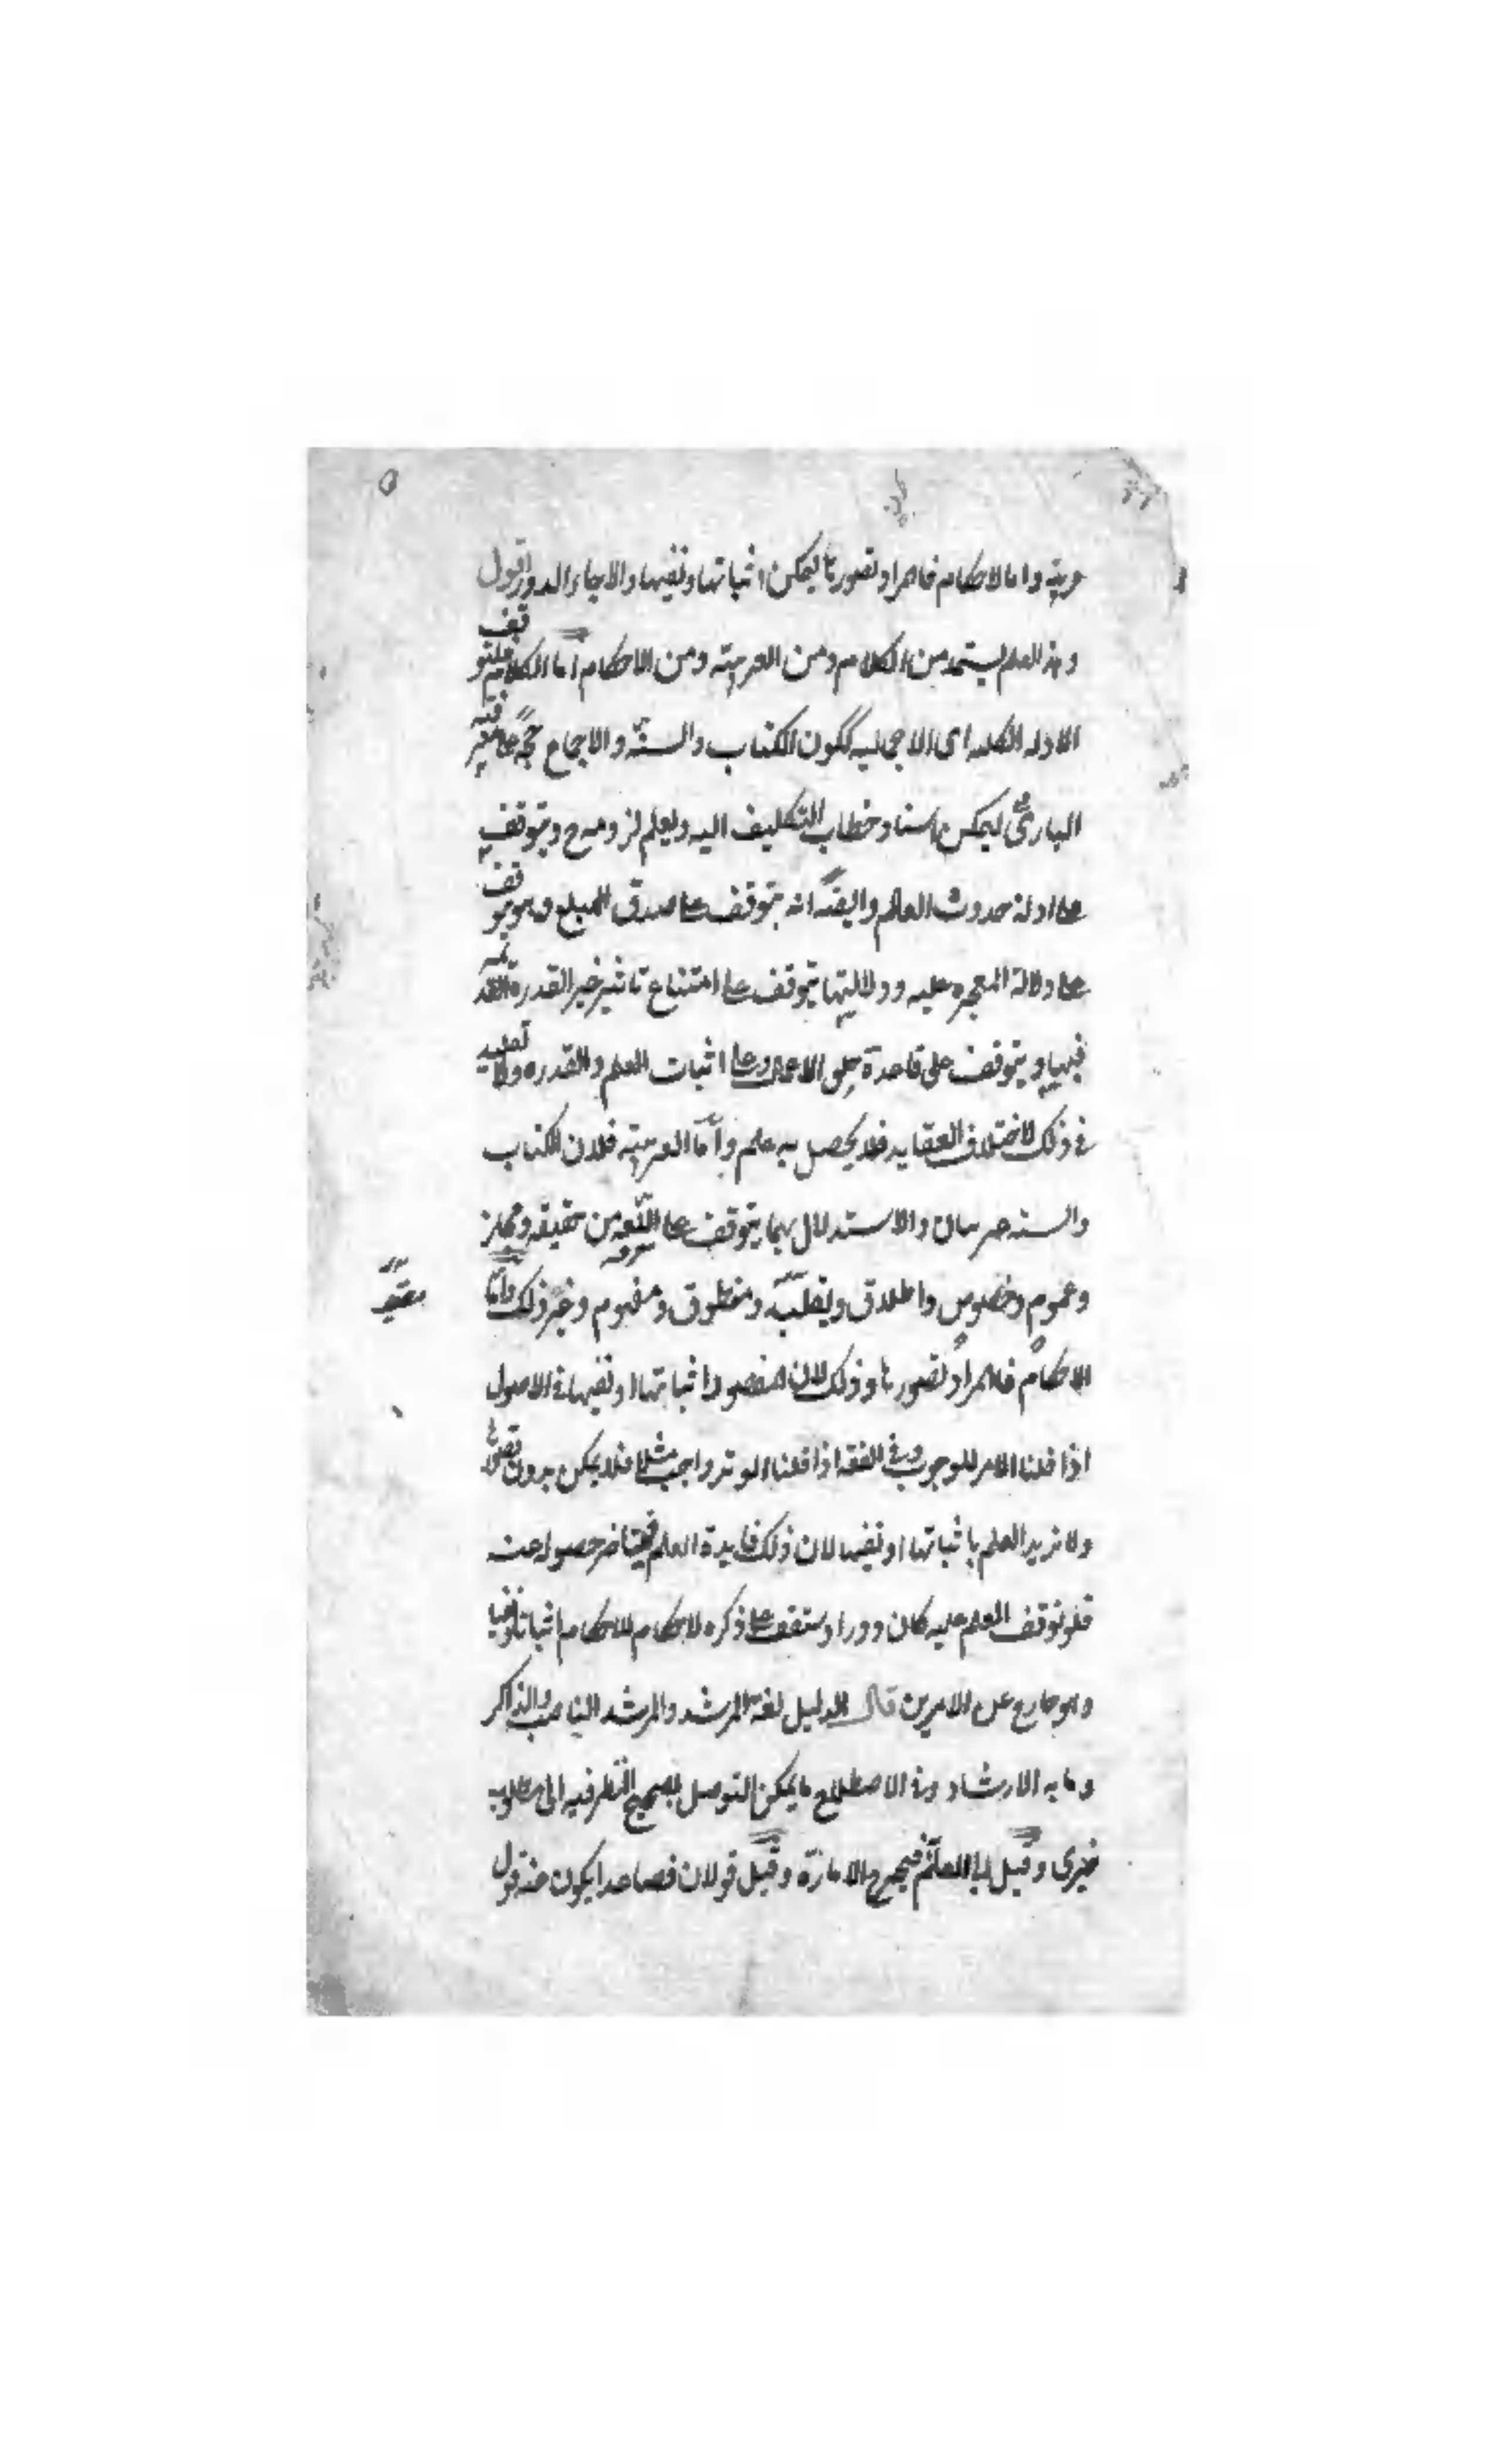 عربية واما الاحكام فالمراد تصورها ليمكن اثباتها ونفيها والا جاء الدور اقول
وهذا العلم يستمد من الكلام ومن العربية ومن الاحكام اما الكلام فلتوقف
الادلة الكلية اى الاجمالية ككون الكتاب والسنة والاجماع حجة على معرفة
البارى ليمكن اسناد خطاب التكليف اليه ويعلم لزومه ح ويتوقف
على ادلة حدوث العالم وايضا انه يتوقف على صدق المبلغ وهو يتوقف
على دلالة المعجزه عليه ودلالتها يتوقف على امتناع تاثير غير القدرة القديمة
فيها ويتوقف على قاعدة خلق الاعمال وعلى اثبات العلم والقدره ولا تقليد
فى ذلك لاختلاف العقايد فلا يحصل به علم واما العربية فلان الكتاب
والسنه عربيان والاستدلال بهما يتوقف على معرفة اللغة من حقيقه ومجاز
وعموم وخصوص واطلاق وتقييد ومنطوق ومفهوم وغير ذلك واما
الاحكام فالمراد تصورها وذلك لان المقصود اثباتها او نفيها فى الاصول
اذا قلنا الامر للوجوب وفى الفقه اذا قلنا الوتر واجب مثلا فلا يمكن بدون تصورها
ولا نريد العلم باثباتها او نفيها لان ذلك فايدة العلم فيتاخر حصوله عنه
فلو توقف العلم عليه كان دورا وستقف على ذكره لاحكام للاحكام اثباتا ونفيا
وهو خارج عن الامرين قال الدليل لغة المرشد والمرشد الناصب والذاكر
وما به الارشاد وفى الاصطلاح ما يمكن التوصل بصحيح النظر فيه الى مطلوب
خبرى وقيل الى العلم فيخرج الامارة وقيل قولان فصاعدا يكون عنه قول